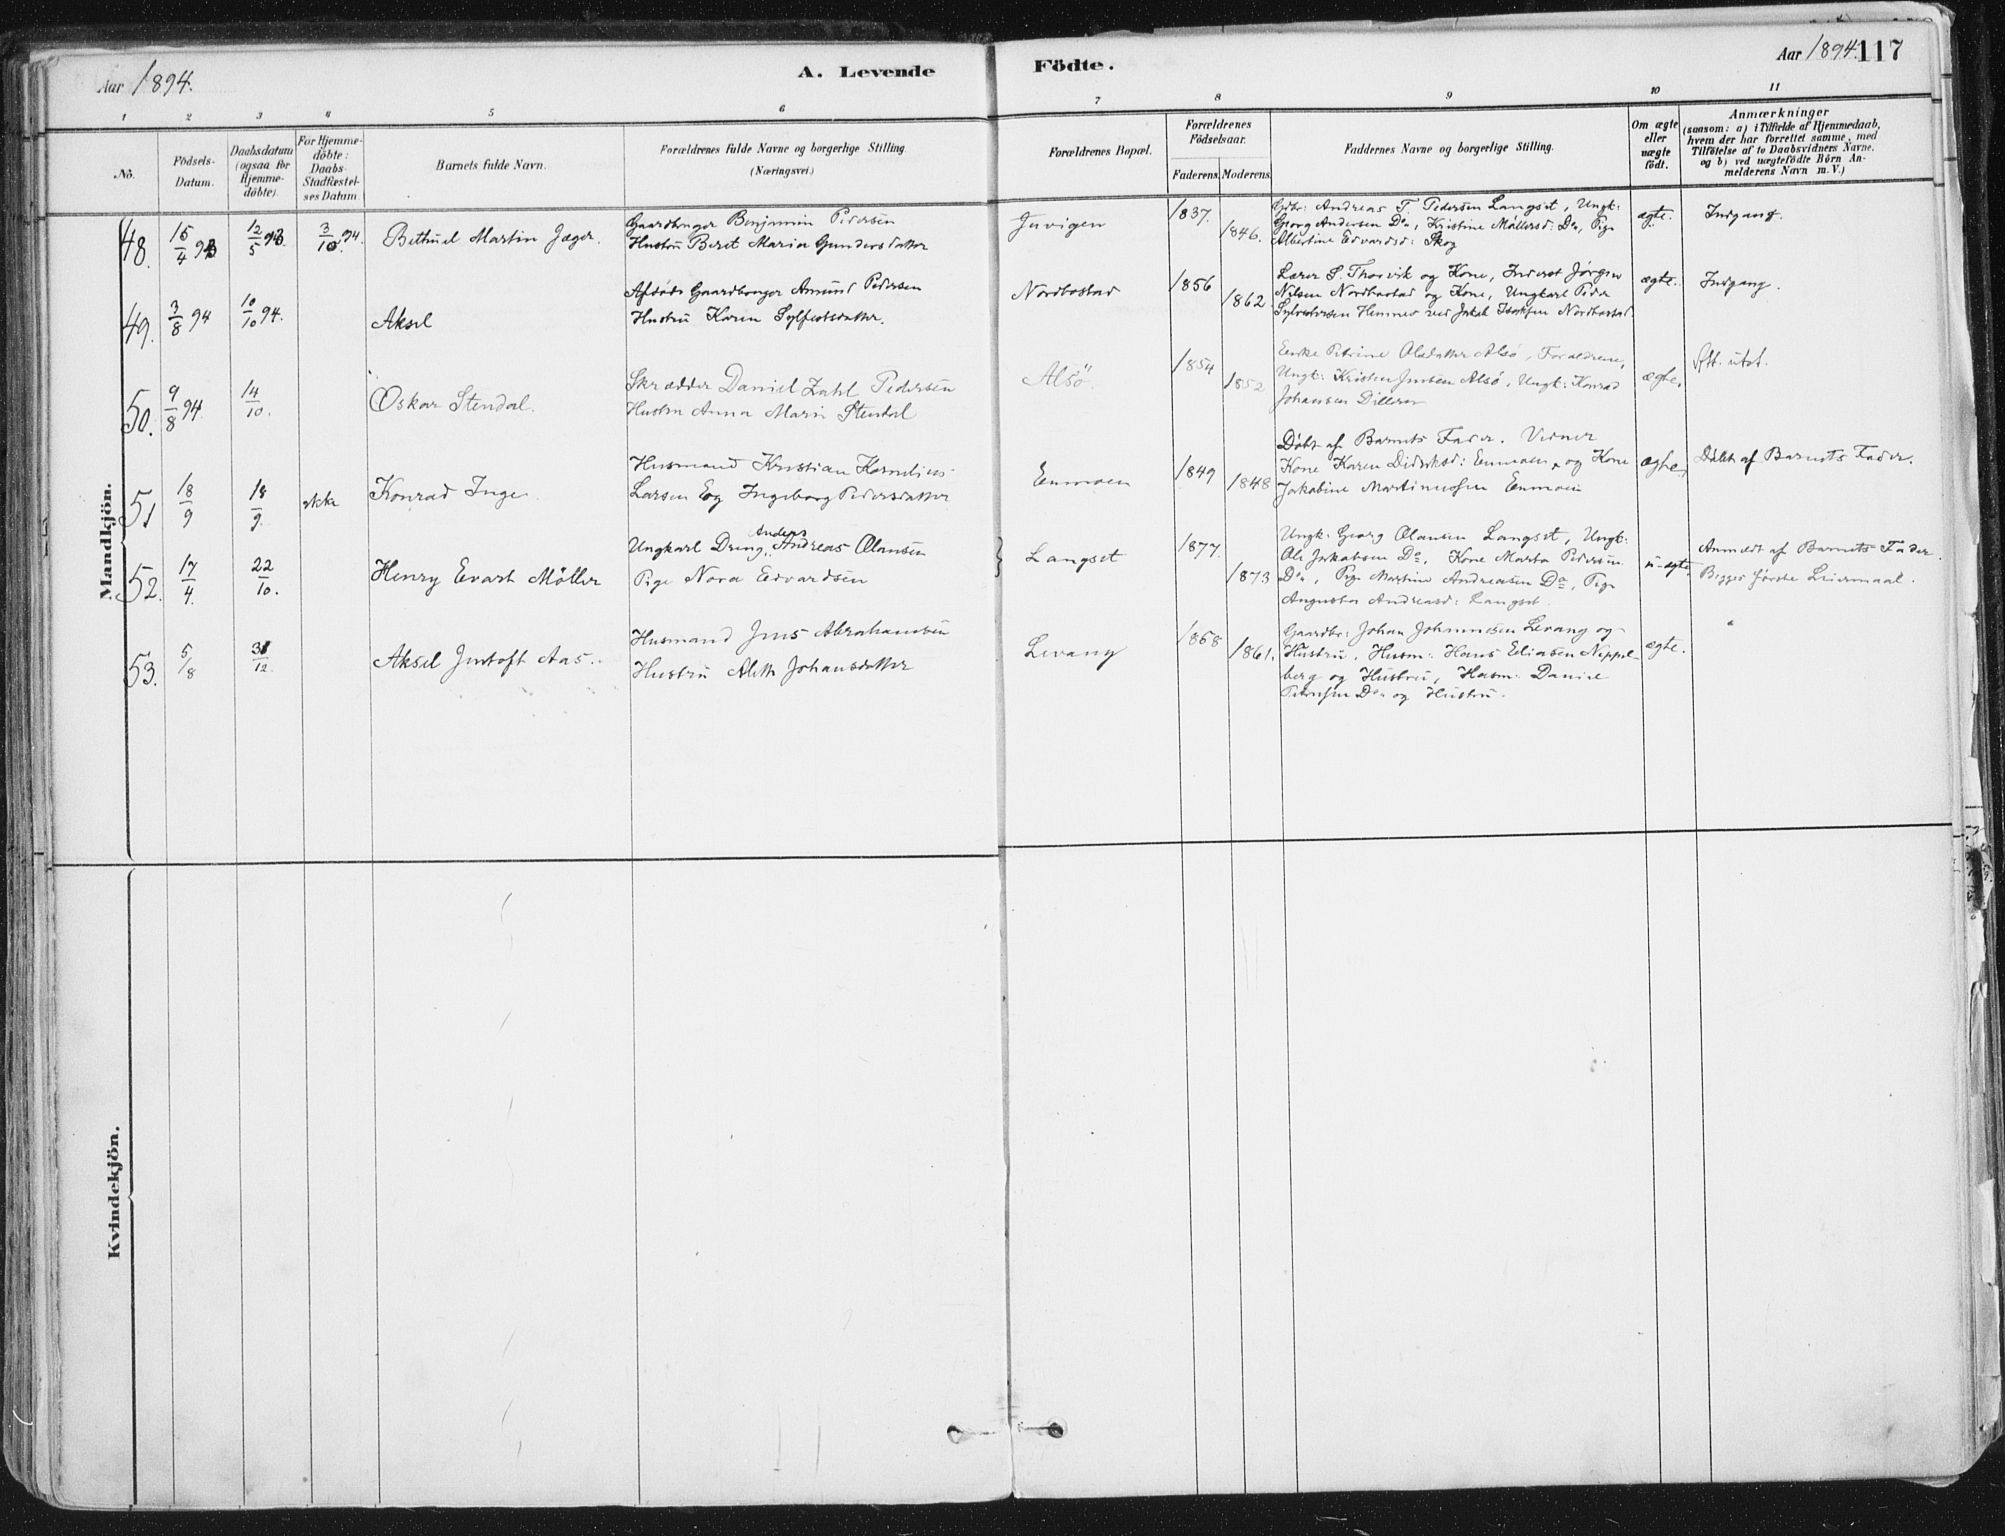 Aar 1894.
A. Levende
Födte.
Aar 1894.
117
1 2 3 4 5 6 7 8 9 10 11
No.
Födsels-
Datum.
Daabsdatum
(ogsaa for
Hjemme-
döbte).
For Hjemme-
döbte:
Daabs-
Stadfæstel-
ses Datum
Barnets fulde Navn.
Forældrenes fulde Navne og borgerlige Stilling
(Næringsvei.)
Forældrenes Bopæl.
Forældrenes
Födselsaar.
Faderens.
Moderens.
Faddernes Navne og borgerlige Stilling.
Om ægte
eller
uægte
födt.
Anmærkninger
(saasom: a) i Tilfælde af Hjemmedaab,
hvem der har forrettet samme, med
Tilföielse af to Daabsvidners Navne,
og b) ved uægtefödte Börn An-
melderens Navn m. V.)
Mandkjön.
48. 15/4 93 12/5 93 3/10 94. Bethuel Martin Jæger.
Gaardbruger Benjamin Pedersen
Hustru Beret Maria Gundersdatter
Juvigen
1837.
1846.
Gdbr: Andreas T. Pedersen Langset, Ungk:
Georg Andersen Do, Kristine Møllersd: Do, Pige
Albertine Edvardsd: Skog
ægte.
Indgang.
49. 3/8 94 10/10 94. Aksel
Afdøde Gaardbruger Amund Pedersen
Hustru Karen Sylfestsdatter.
Nordbostad
1856
1862
Lærer S. Thorvik og Kone, Inderst Jørgen
Nilsen Nordbostad og Kone, Ungkarl Peder
Sylvestersen Hemnes ved Jakob Isaksen Nordbostad.
ægte.
Indgang.
50. 9/8 94. 14/10. Oskar Stendal.
Skrædder Daniel Zahl Pedersen
Hustru Anna Marie Stendal
Alsö.
1854
1852
Enke Petrine Olsdatter Alsö, Forældrene,
Ungk: Kristen Jensen Alsö, Ungk: Konrad
Johansen
ægte.
Att. utst.
51 18/9 18/9. ikke Konrad Inge.
Husmand Kristian Kornelius
Larsen Eg Ingeborg Pedersdatter
Enmoen
1849
1848
Döbt af Barnets Fader. Vidner
Kone Karen Didriksd: Enmoen, og Kone
Jakobine Martinussen Enmoen
ægte
Döbt af Barnets Fader.
52. 17/4. 22/10. Henry Evart Möller
Anders
Ungkarl Dreng Andreas Olausen
Pige Nora Edvardsen
Langset
1877.
1873
Ungk: Georg Olausen Langset, Ungk:
Ole Jakobsen Do, Kone Marta Pedersen
Do, Pige Martine Andreasen Do, Pige
Augusta Andreasd: Langset.
u-ægte.
Anmeldt af Barnets Fader.
Begges første Leiermaal.
53. 5/8 31/12. Aksel Justoft Aas.
Husmand Jens Abrahamsen
Hustru Aleth Johansdatter
Levang
1868
1861.
Gaardbr: Johan Johannesen Levang og
Hustru, Husm: Hans Eliasen Nippel-
berg og Hustru, Husm: Daniel
Petersen Do og Hustru.
ægte.
Kvindekjön.